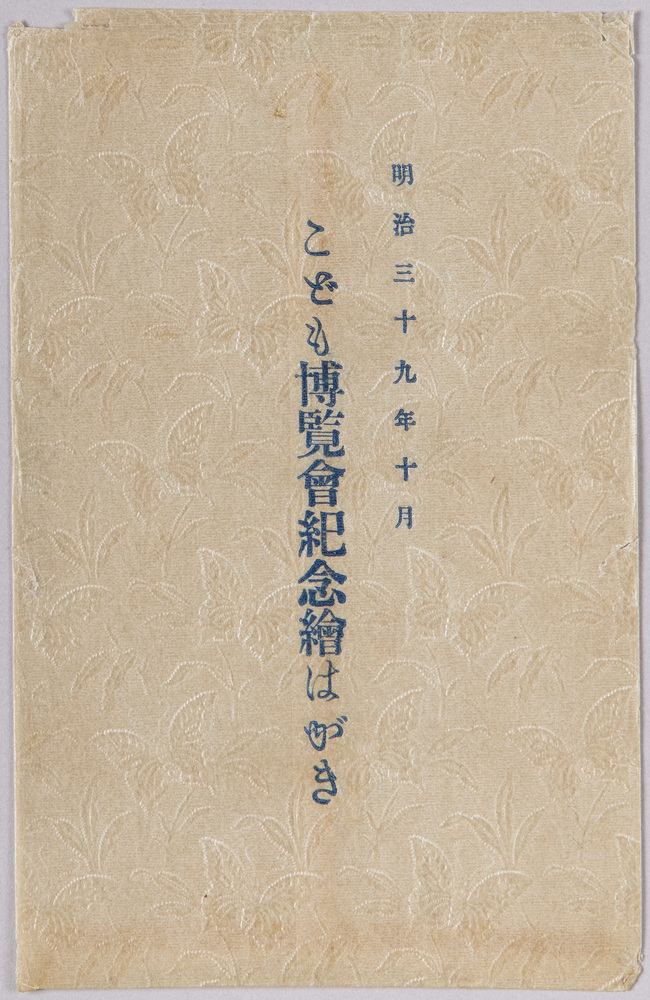 明治三十九年十月
こども博覧會紀念繪はがき